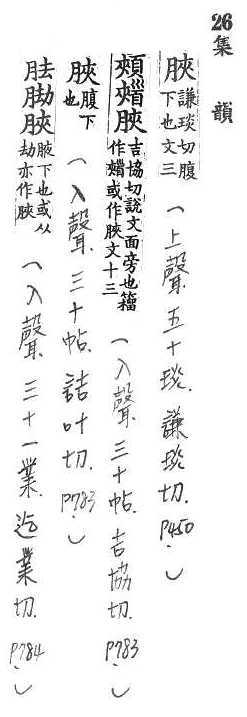 26
集韻
脥 謙琰切腹下也文三 (上聲. 五十琰. 謙琰切. P450.)
頰䫡脥 吉協切說文面旁也籀作䫡或作脥文十三 (入聲. 三十帖. 吉協切. P783.)
脥 腹下也 (入聲. 三十帖. 詰叶切. P783.)
胠胁脥 腋下也或从劫亦作脥 (入聲. 三十一業. 迄業切. P784.)